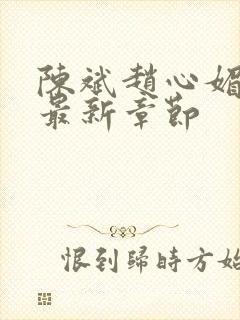 陳斌趙心媚
最新章節
恨到歸時方始